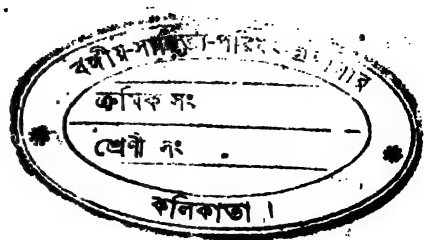 বঙ্গীয়-সাহিত্য-পরিষৎ গ্রন্থাগার
ক্রমিক সং
শ্রেণী সং
কলিকাতা।